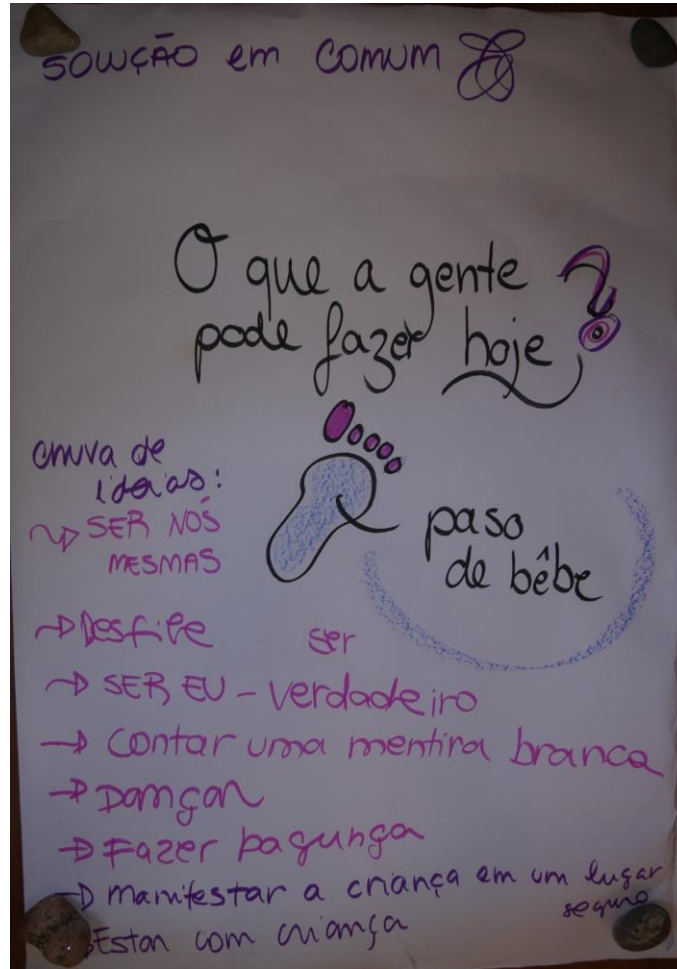 SOLUÇÃO em COMUM
O que a gente
pode fazer hoje?
paso
de bêbe
chuva de
ideias:
SER NÓS
MESMAS
→ Desfile
ser
→ SER EU - verdadeiro
→ contar uma mentira branca
→ Dançar
→ Fazer bagunça
→ manifestar a criança em um lugar
seguro
Estar com criança